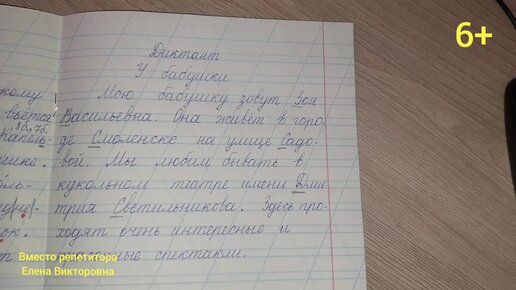 6+
Диктант
У бабушки
Мою бабушку зовут Зоя
Васильевна. Она живёт в горо-
де Смоленске на улице Садо-
вой. Мы любим бывать в
кукольном театре имени Дми-
трия Светильникова. Здесь про-
ходят очень интересные и
спектакли.
кому
вьётся
Капель-
шке.
Вместо репетитора
Елена Викторовна